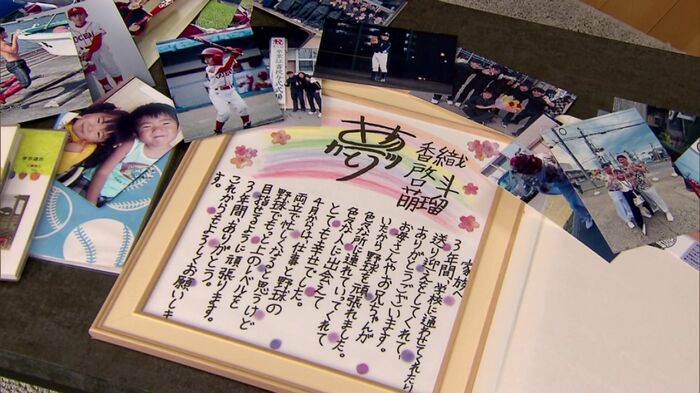 夢
ありがとう
香織
啓斗
萌瑠
家族へ
3年間、学校に通わせてくれたり
送り迎えなどしてくれて、
ありがとうございます。
お母さんやお兄ちゃんが
いたから野球を頑張れました。
色々な所に連れていってくれて
色々な人に出会えて
とても幸せでした。
4月からは仕事と野球の
両立で忙しくなると思うけど
野球でもっと上のレベルを
目指せるように頑張ります。
3年間ありがとう。
これからもよろしくお願いしま
す。